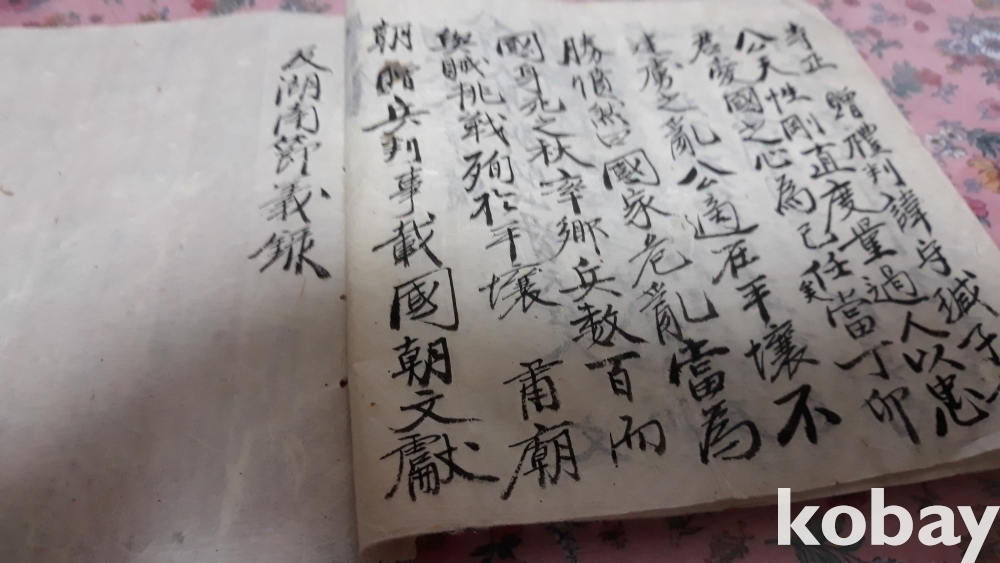 寺正 贈禮判諱守緘子
公天性剛直度量過人以忠
君愛國之心為己任當丁卯
建虜之亂公適在平壤不
勝憤然曰國家危亂當為
國身死之秋率鄉兵數百而
與賊挑戰殉於平壤 甫廟
朝贈兵判事載國朝文獻
及湖南節義錄
kobay